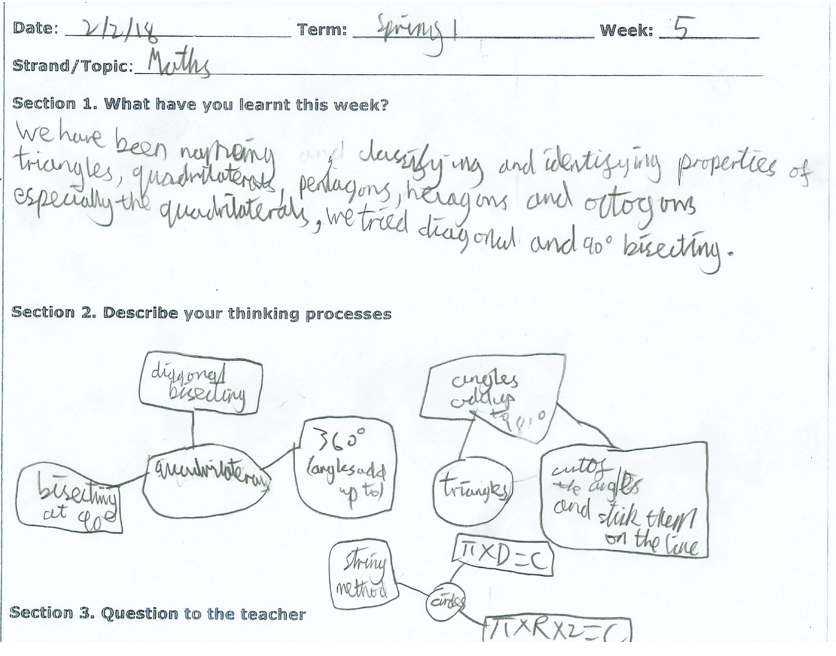 Date: 2/2/18 Term: Spring 1 Week: 5
Strand/Topic: Maths
Section 1. What have you learnt this week?
We have been and classifying and identifying properties of
triangles, quadrilaterals, pentagons, hexagons and octogons
especially the quadrilaterals, we tried diagonal and 90° bisecting.
Section 2. Describe your thinking processes
diagonal
bisecting
quadrilaterals
bisecting
at 90°
360°
(angles add
up to)
angles
add up
to
triangles
cut of
the angles
and stick them
on the line
string
method
circles
π×D=C
π×R×2=C
Section 3. Question to the teacher